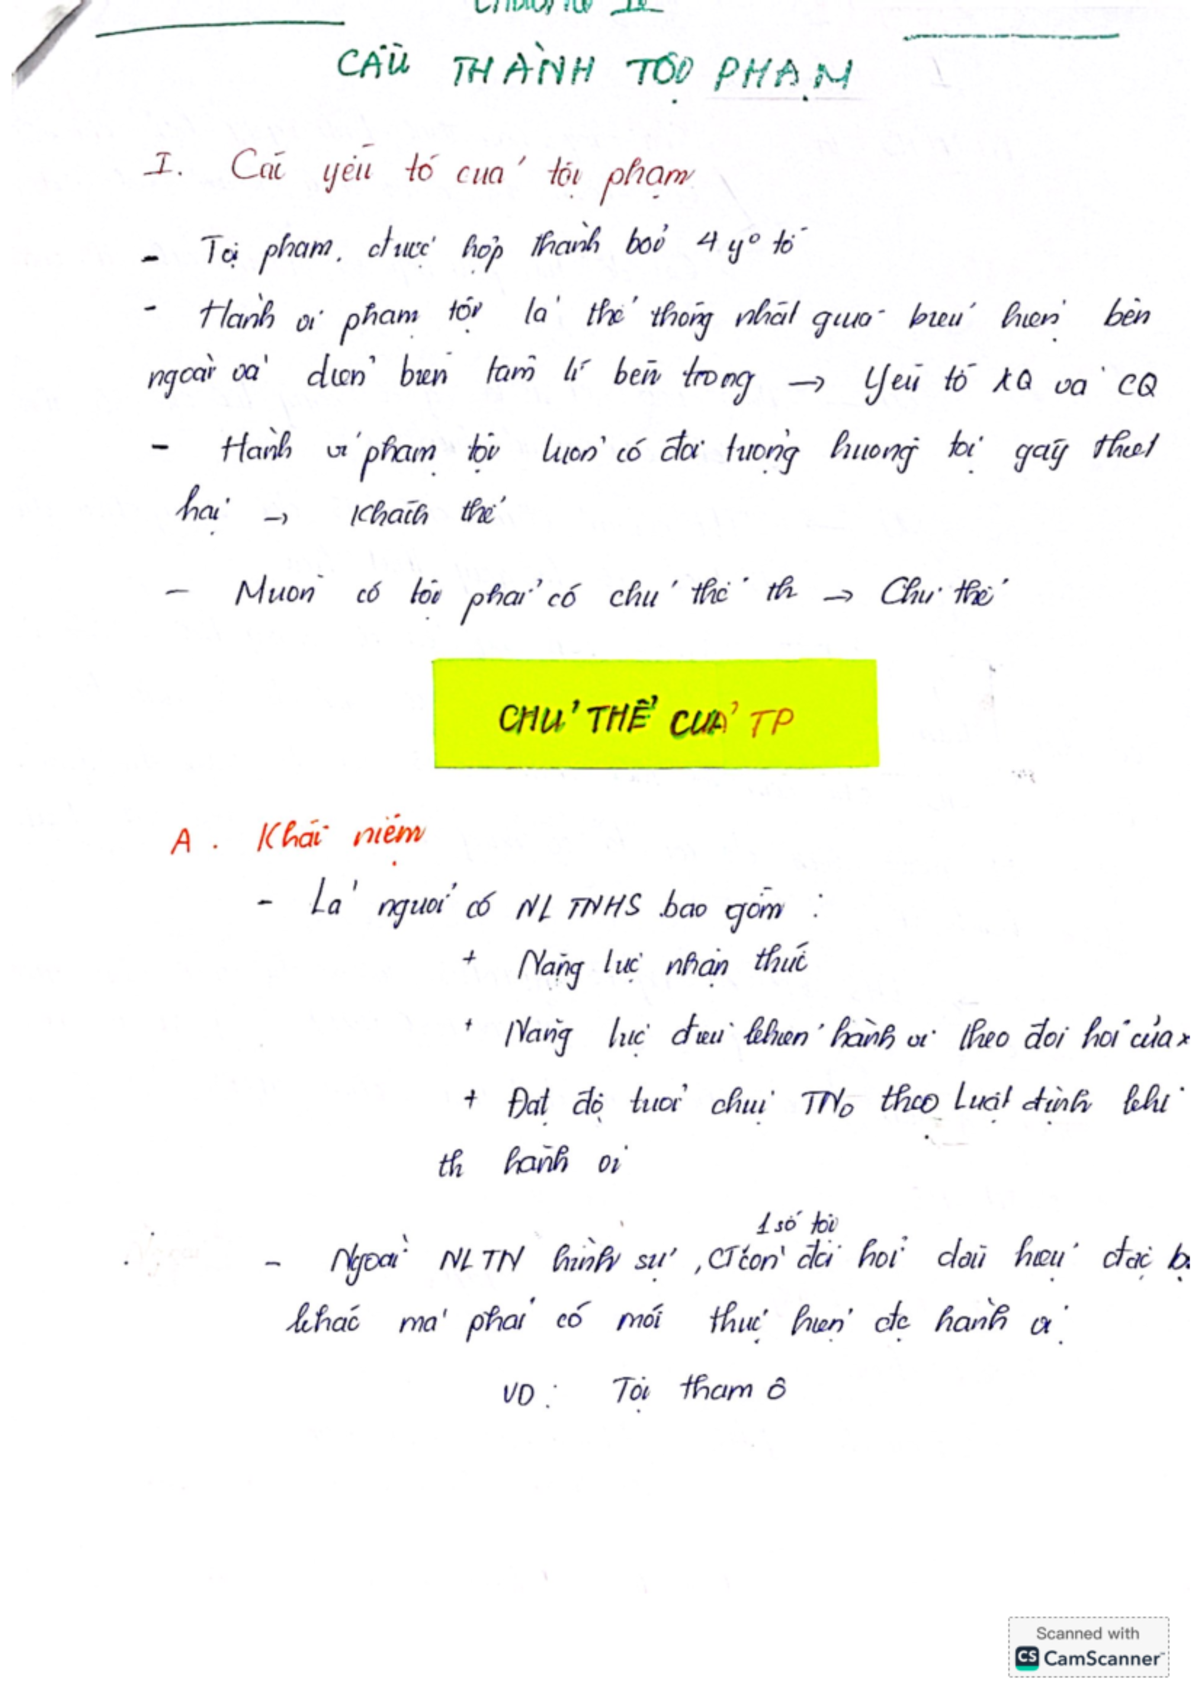 CHƯƠNG II
CẤU THÀNH TỘI PHẠM
I. Các yếu tố của tội phạm
- Tội phạm được hợp thành bởi 4 yº tố
- Hành vi phạm tội là thể thống nhất giữa biểu hiện bên
ngoài và diễn biến tâm lí bên trong → Yếu tố KQ và CQ
- Hành vi phạm tội luôn có đối tượng hướng tới gây thiệt
hại → Khách thể
- Muốn có tội phải có chủ thể th → Chủ thể
CHỦ THỂ CỦA TP
A. Khái niệm
- Là người có NL TNHS bao gồm :
+ Năng lực nhận thức
+ Năng lực điều khiển hành vi theo đòi hỏi của x
+ Đạt độ tuổi chịu TNo theo Luật định khi
th hành vi
1 số tội
- Ngoài NLTN hình sự, CT còn đòi hỏi dấu hiệu đặc b
khác mà phải có mới thực hiện đc hành vi
VD : Tội tham ô
Scanned with
CS CamScanner